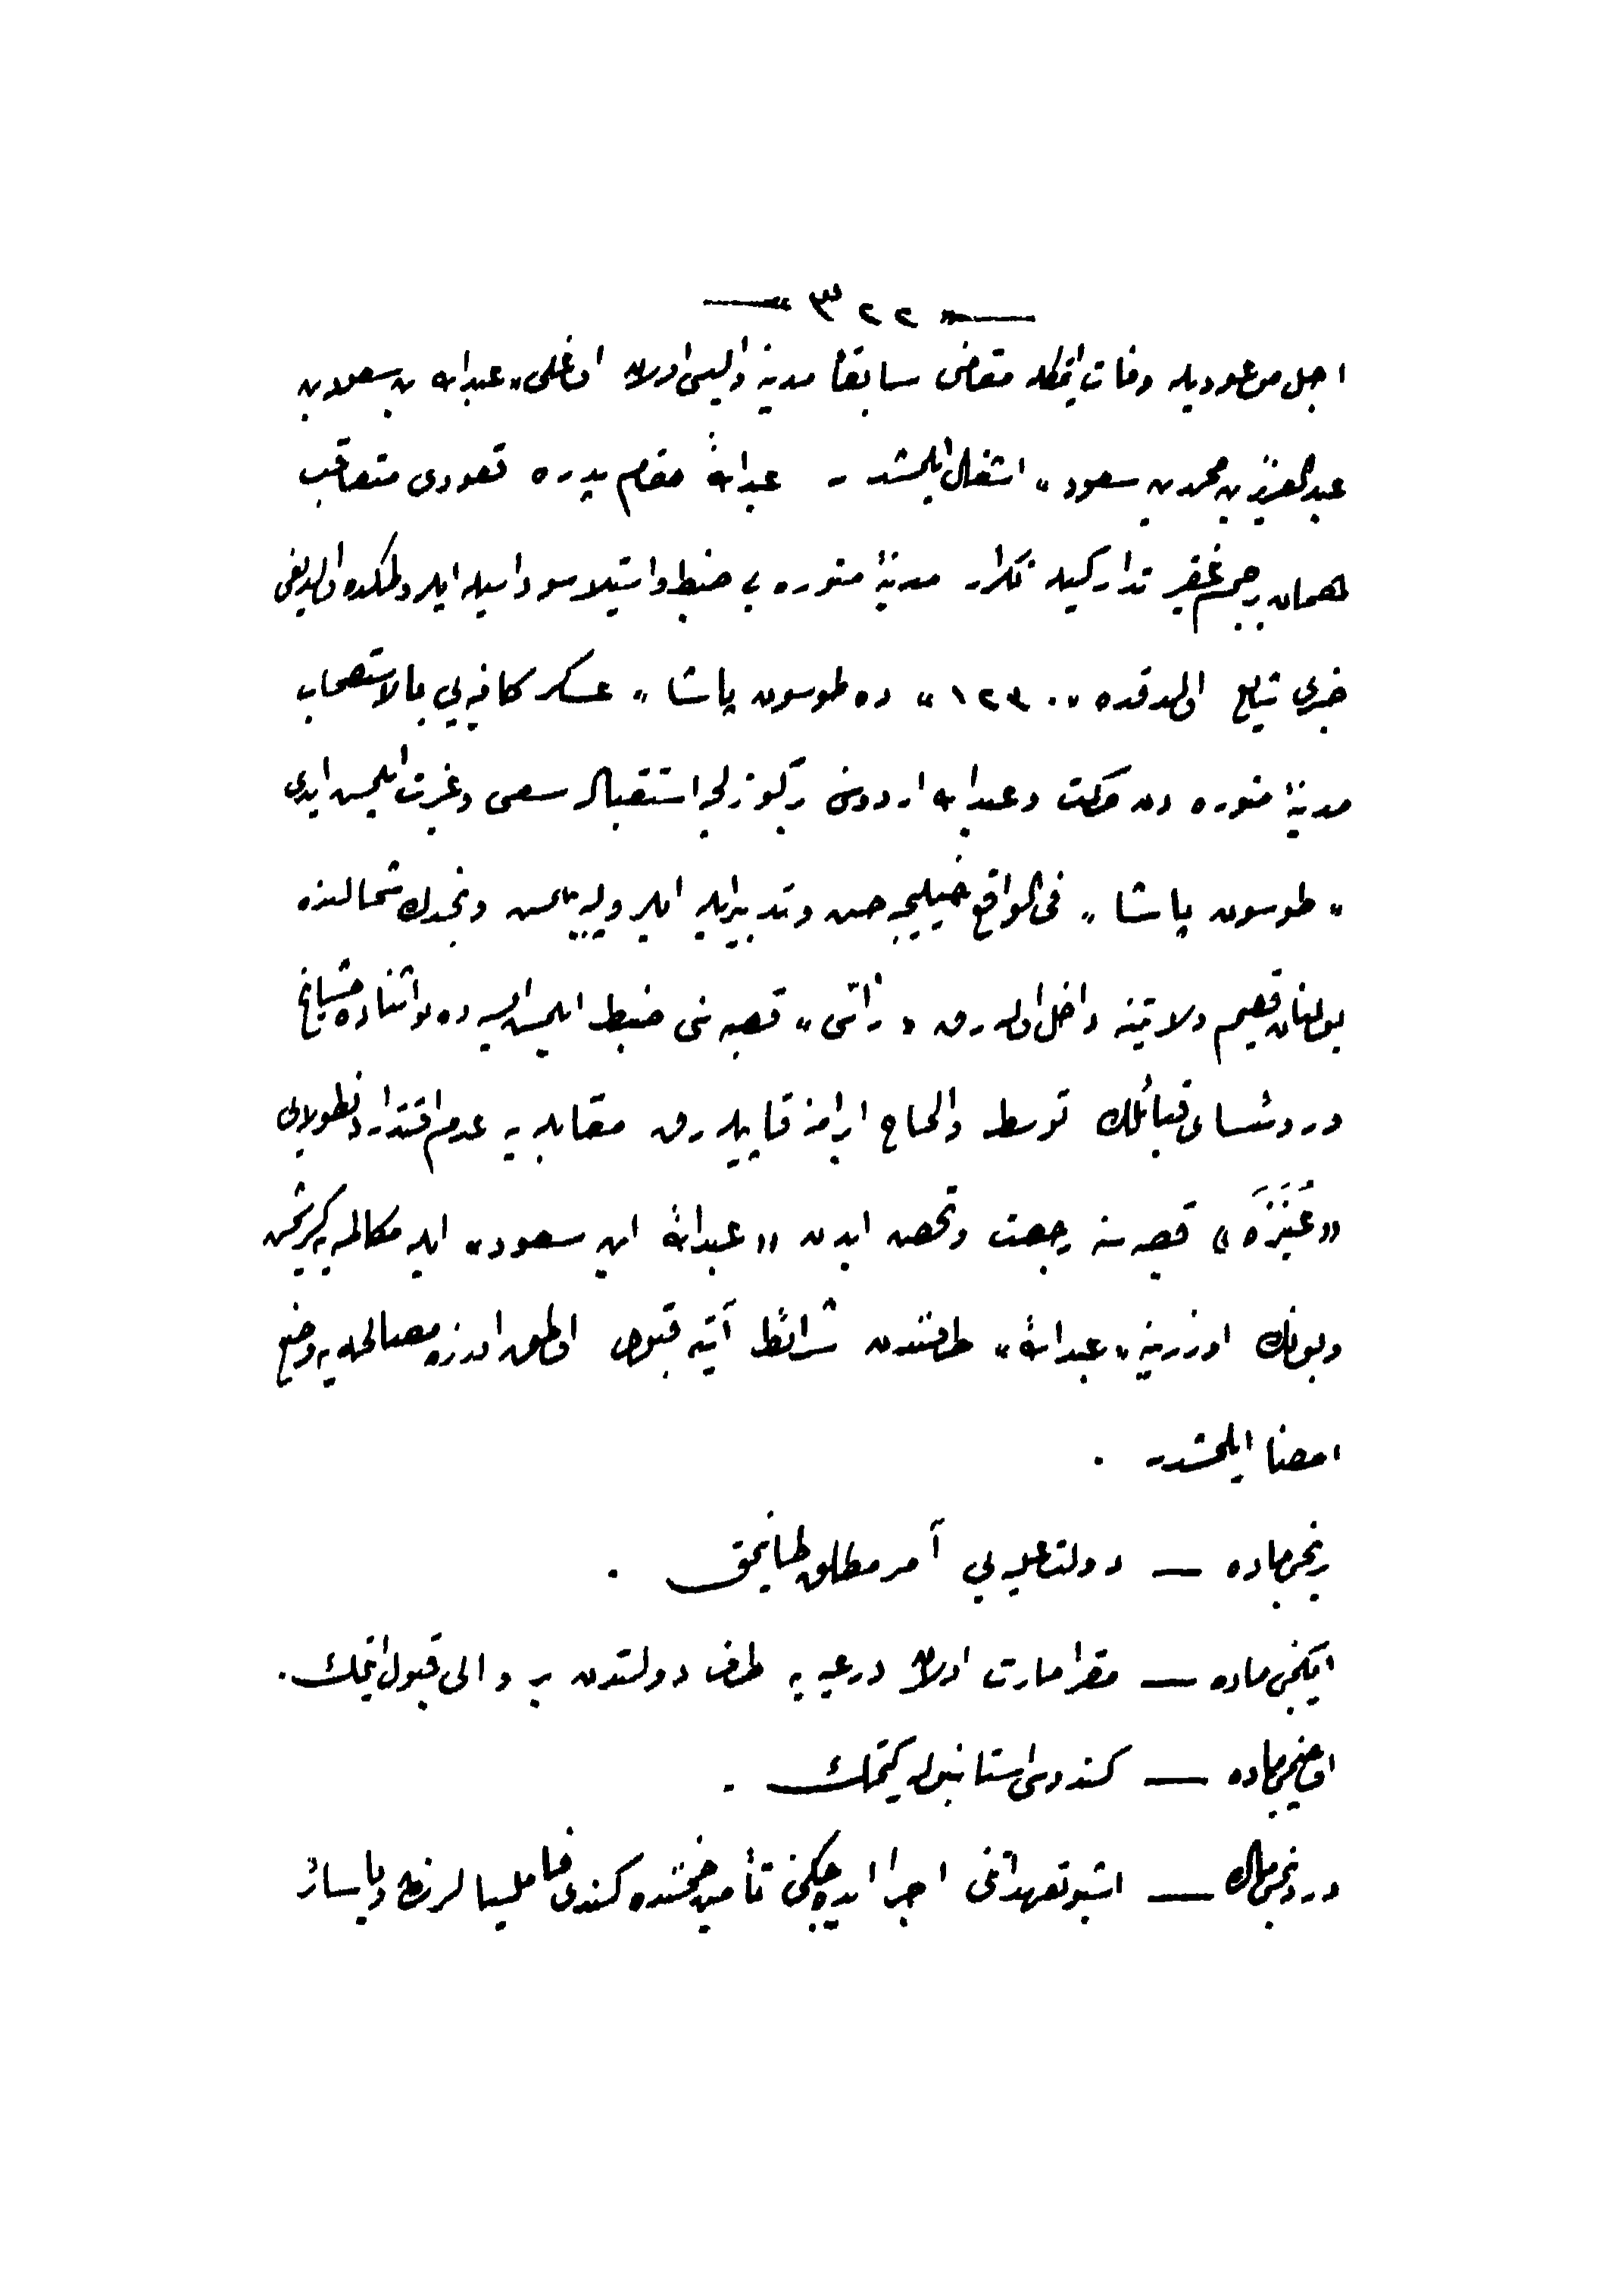 — ٣٢٢ —
اجل موعودیله وفات ایتمکله مقامنی سابقا مدینه والیسی اولان اوغلی « عبدالله بن سعود بن
عبدالعزیز بن محمد بن سعود » اشغال ایلمشدر . عبدالله مقام پدره قعودی متعاقب
همان بر جم غفیر تدارکیله تکرار مدینۀ منوره یی ضبط و استیلا سوداسیله ایلرولمکده اولدیغی
خبری شایع اولدقده « ١٢٣٠ » ده طوسون پاشا » عسکر کافیه یی بالاستصحاب
مدینۀ منوره دن حرکت و عبدالله اردوسنی بر کوزلجه استقباله سعی و غیرت ایلمش ایدی
« طوسون پاشا » فی الواقع خیلیجه حسن و تدبیر ایله ایلرولیه بیلمش و نجدك شمالنده
بولنان قصیم ولایتنه داخل اوله رق « راس » قصبه سنی ضبط ایلمش ایسه ده بو اثناده مشایخ
و رؤسای قبائلك توسط و الحاح ابرامنه قاپیله رق مقابله یه عدم اقتدارندن طولایی
« عُنَیْزَه » قصبه سنه رجعت و تحصن ایدن « عبدالله ابن سعود » ایله مکالمه یه کیریشمش
و بونك اوزرینه « عبدالله » طرفندن شرائط آتیه قبول اولنمق اوزره مصالحه یه وضع
امضا ایلمشدر .
برنجی ماده — دولت علیه یی آمر مطلق طانیمق .
ایکنجی ماده — مقر امارت اولان درعیه یه طرف دولتدن بر والی قبول ایتمك .
اوچنجی ماده — کندوسی استانبوله کیتمك .
دردنجی ماده — اشبو تعهداتنی اجرا ایده جکنی تأمین ضمننده کندی فامیلیالرندن و یا سائر